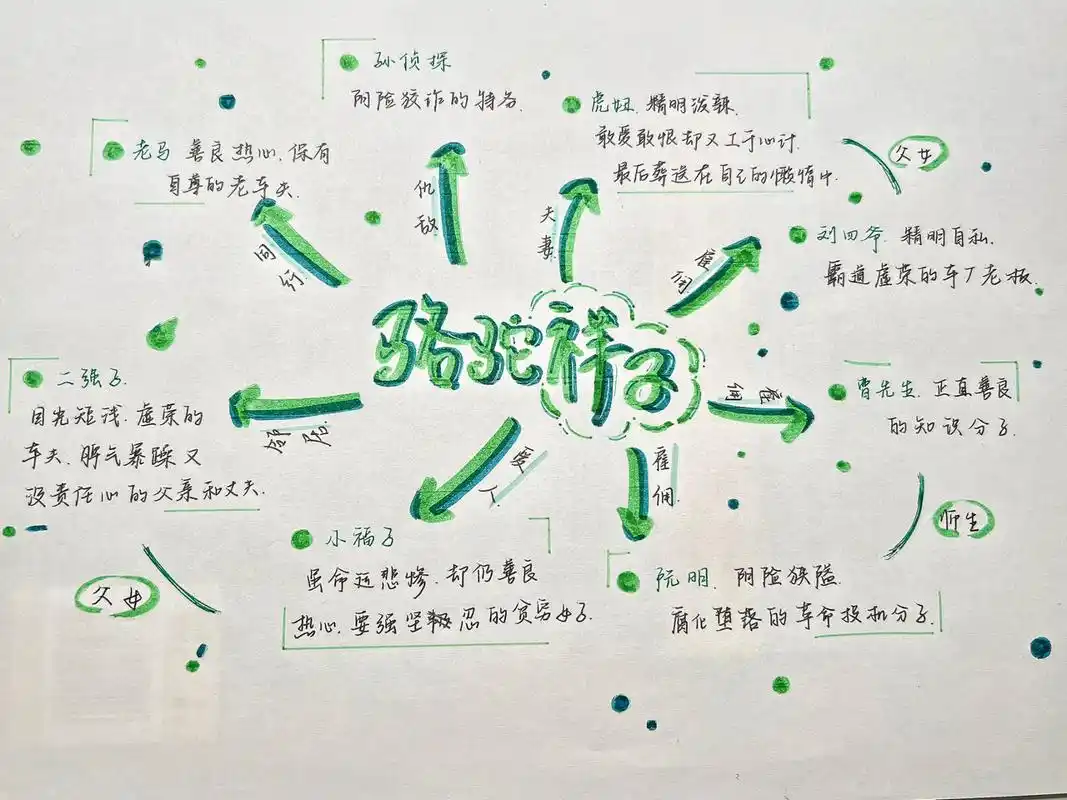 孙侦探
阴险狡诈的特务.
虎妞.精明泼辣.
敢爱敢恨却又工于心计.
最后葬送在自己的懒惰中.
父女
老马 善良热心.保有
自尊的老车夫.
仇敌
夫妻
同行
雇佣
刘四爷.精明自私.
霸道虚荣的车厂老板.
骆驼祥子
二强子.
目光短浅.虚荣的
车夫.脾气暴躁又
没责任心的父亲和丈夫.
邻居
雇佣
曹先生.正直善良
的知识分子.
爱人
雇佣.
师生
小福子
虽命运悲惨.却仍善良
热心.要强坚忍的贫穷女子.
阮明.阴险狭隘.
腐化堕落的革命投机分子.
父女